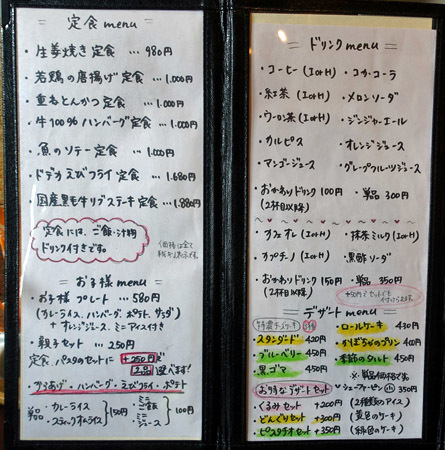 = 定食 menu =
・生姜焼き定食 … 980円
・若鶏の唐揚げ定食 … 1.000円
・重ねとんかつ定食 … 1.000円
・牛100% ハンバーグ定食 … 1.000円
・魚のソテー定食 … 1.000円
・ドデカえびフライ定食 … 1.680円
・国産黒毛牛リブステーキ定食 … 1.880円
定食には、ご飯・汁物
ドリンク付きです。
(価格は全て
税込み表示です。
= お子様 menu =
・お子様プレート … 580円
(カレーライス、ハンバーグ、ポテト、サラダ)
+ オレンジジュース、ミニアイス付き
・親子セット … 250円
定食、パスタのセットに +250円で
2品選べます!
からあげ・ハンバーグ・えびフライ・ポテト
単品 ・カレーライス
・スティックオムライス 150円
・ミニご飯
・ミニジュース 100円
= ドリンク menu =
・コーヒー (I or H) ・コカ・コーラ
・紅茶 (I or H) ・メロンソーダ
・ウーロン茶 (I or H) ・ジンジャーエール
・カルピス ・オレンジジュース
・マンゴージュース ・グレープフルーツジュース
・おかわりドリンク 100円 ・単品 300円
(2杯目以降)
・カフェオレ (I or H) ・抹茶ミルク (I or H)
・カプチーノ (I or H) ・黒酢ソーダ
・おかわりドリンク 150円 ・単品 350円
(2杯目以降) +50円でセットでも
付けられます。
= デザート menu =
特濃チーズケーキ
・スタンダード 420円 ・ロールケーキ 430円
・ブルーベリー 450円 ・かぼちゃのプリン 410円
・黒ゴマ 450円 ・季節のタルト 450円
※ 単品価格です。
お得なデザートセット ・シューフォーピン 350円
・くるみセット +200円 (2種類のアイス)
・どんぐりセット +300円 (黄色のケーキ)
・ピスタチオセット +350円 (緑色のケーキ)